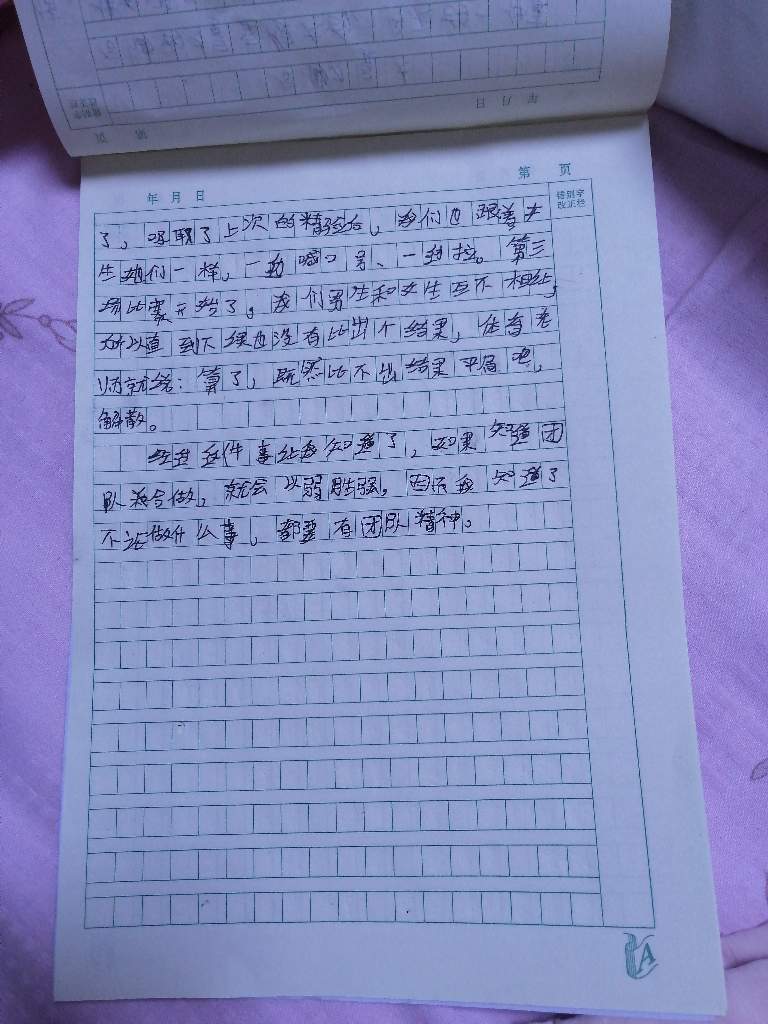 年 月 日
第 页
错别字
改正栏
了，吸取了上次的精验后，我们也跟着女
生她们一样，一边喊口号、一边拉。第三
场比赛开始了，我们男生和女生互不相让，
所以直到下课也没有比出个结果，体育老
师就说：算了，既然比不出结果平局吧，
解散。
经过这件事让我知道了，如果知道团
队合做，就会以弱胜强，因而我知道了
不论做什么事，都要有团队精神。